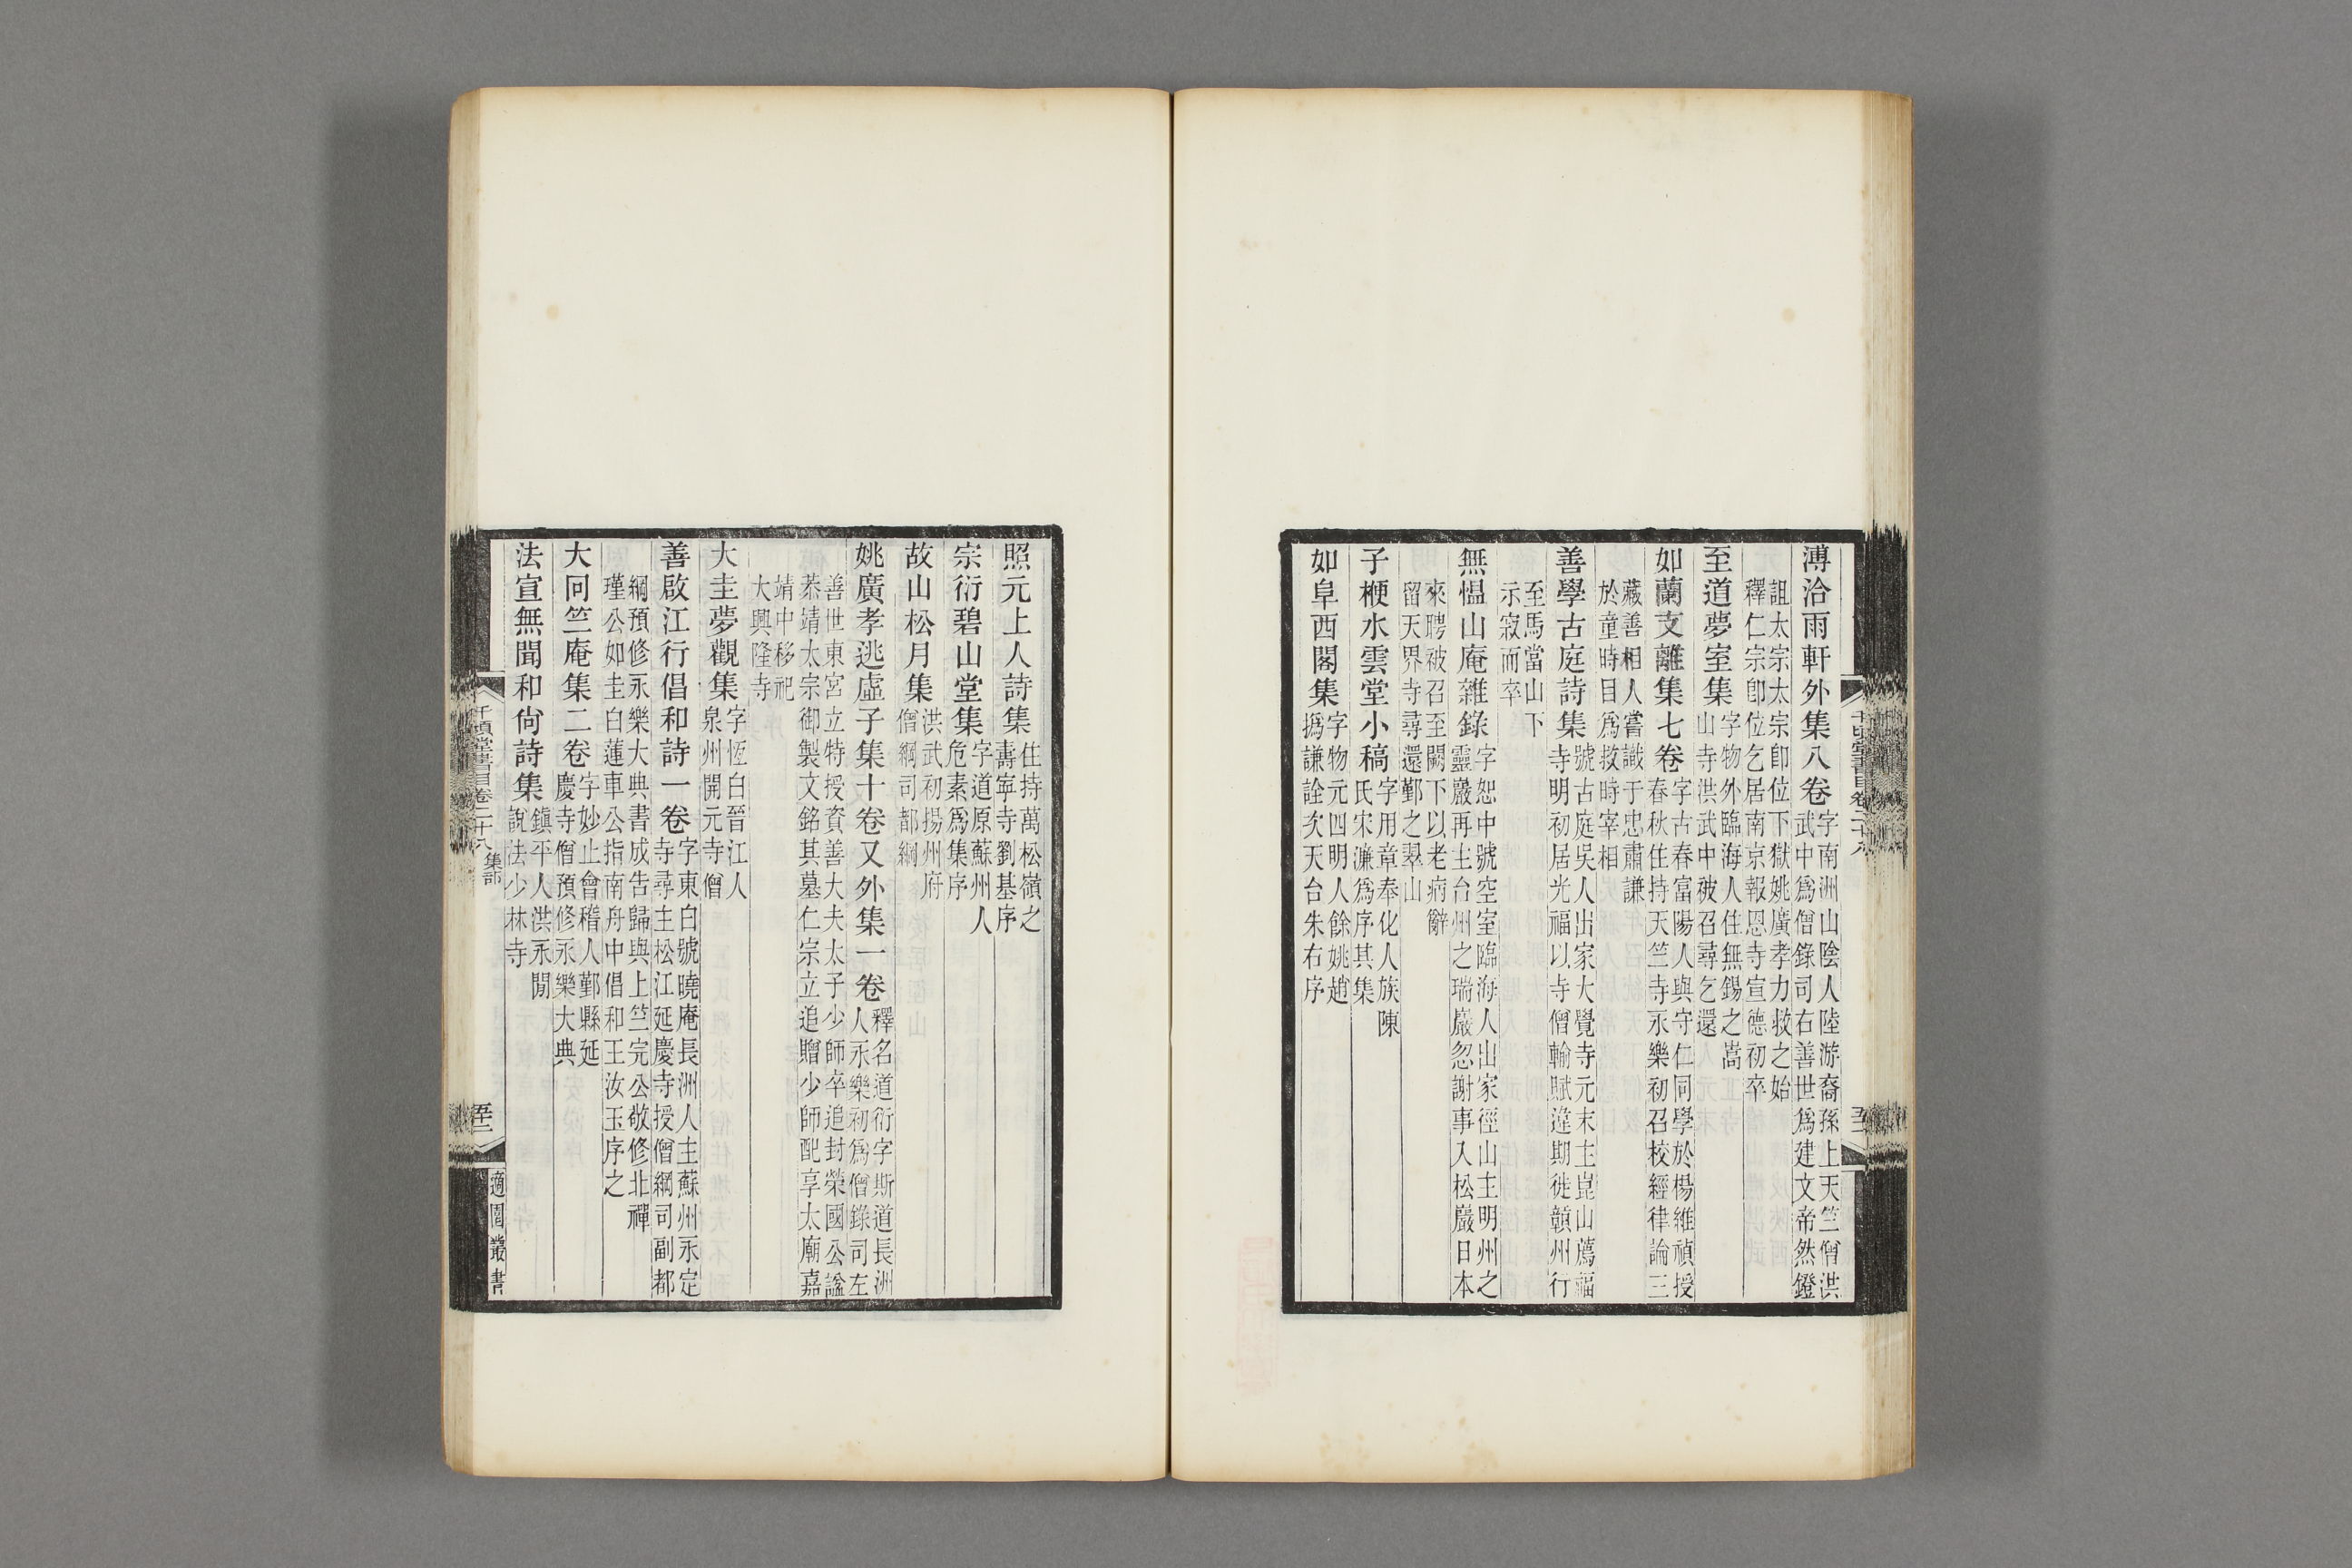 溥洽雨軒外集八卷字南洲山陰人陸游裔孫上天竺僧洪
武中爲僧錄司右善世爲建文帝然鐙
詛太宗太宗卽位下獄姚廣孝力救之始
釋仁宗卽位乞居南京報恩寺宣德初卒
至道夢室集字物外臨海人住無錫之嵩
山寺洪武中被召尋乞還
如蘭支離集七卷字古春富陽人與守仁同學於楊維禎授
春秋住持天竺寺永樂初召校經律論三
藏善相人嘗識于忠肅謙
於童時目爲救時宰相
善學古庭詩集號古庭吳人出家大覺寺元末主崑山薦福
寺明初居光福以寺僧輸賦違期徙贑州行
至馬當山下
示寂而卒
無慍山庵雜錄字恕中號空室臨海人出家徑山主明州之
靈巖再主台州之瑞巖忽謝事入松巖日本
來聘被召至闕下以老病辭
留天界寺尋還鄞之翠山
子楩水雲堂小稿字用章奉化人族陳
氏宋濂爲序其集
如阜西閣集字物元四明人餘姚趙
撝謙詮次天台朱右序
照元上人詩集住持萬松嶺之
壽寧寺劉基序
宗衍碧山堂集字道原蘇州人
危素爲集序
故山松月集洪武初揚州府
僧綱司都綱
姚廣孝逃虛子集十卷又外集一卷釋名道衍字斯道長洲
人永樂初爲僧錄司左
善世東宮立特授資善大夫太子少師卒追封榮國公謚
恭靖太宗御製文銘其墓仁宗立追贈少師配享太廟嘉
靖中移祀
大興隆寺
大圭夢觀集字恆白晉江人
泉州開元寺僧
善啟江行倡和詩一卷字東白號曉庵長洲人主蘇州永定
寺尋主松江延慶寺授僧綱司副都
綱預修永樂大典書成告歸與上竺完公敬修北禪
瑾公如圭白蓮車公指南舟中倡和王汝玉序之
大同竺庵集二卷字妙止會稽人鄞縣延
慶寺僧預修永樂大典
法宣無聞和尙詩集鎭平人洪永閒
說法少林寺
千頃堂書目卷二十八 集部
適園叢書